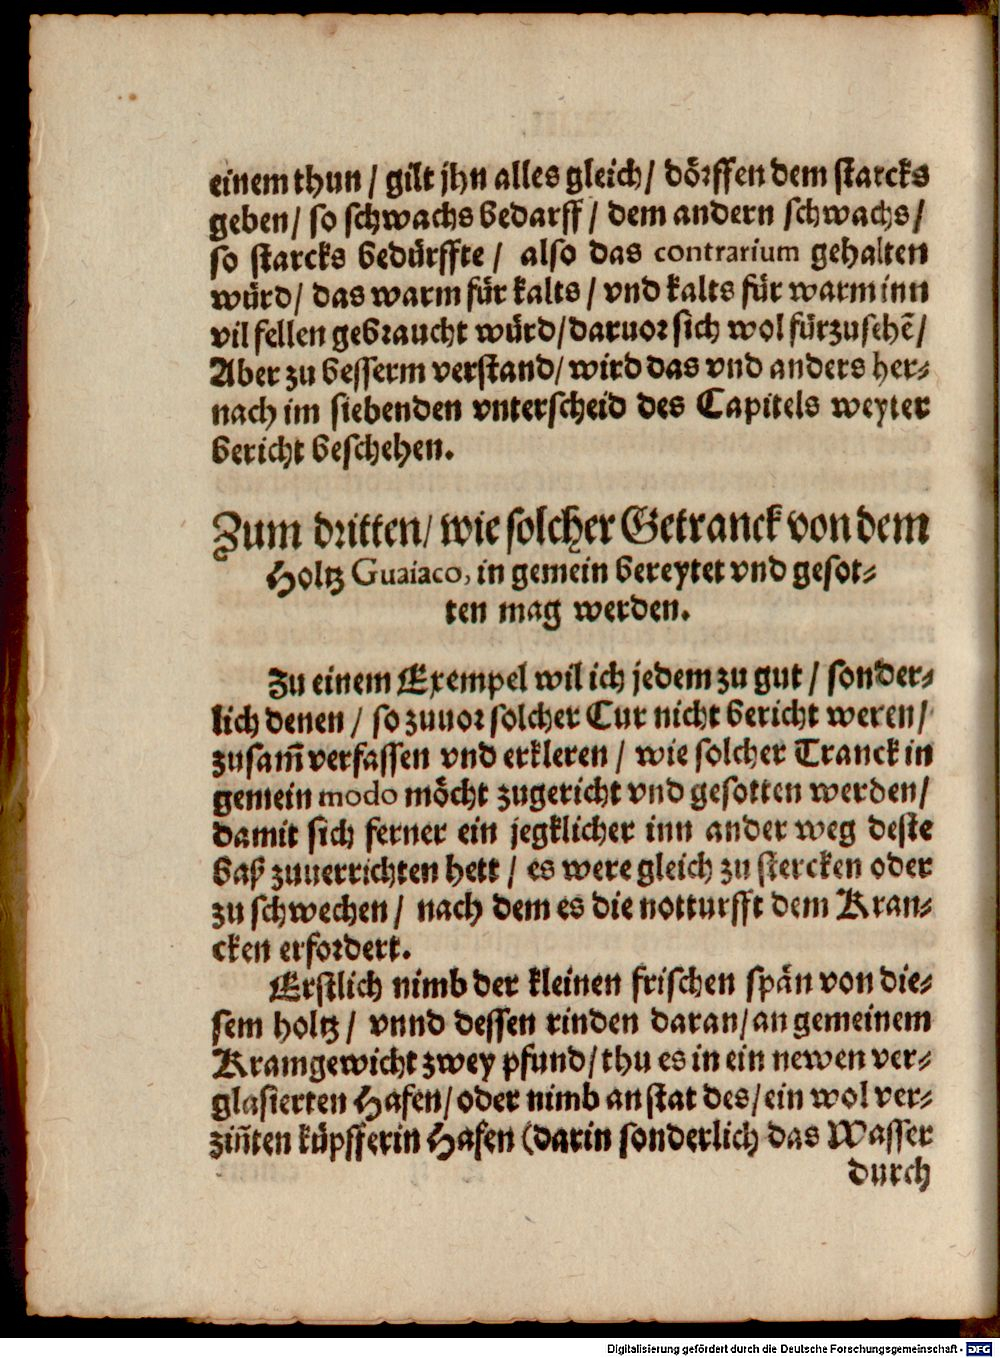 einem thun / gilt jhn alles gleich / dörffen dem starcks
geben / so schwachs bedarff / dem andern schwachs /
so starcks bedürffte / also das contrarium gehalten
würd / das warm für kalts / vnd kalts für warm inn
vil fellen gebraucht würd / daruor sich wol fürzusehẽ /
Aber zu besserm verstand / wird das vnd anders her⸗
nach im siebenden vnterscheid des Capitels weyter
bericht beschehen.
Zum dritten / wie solcher Getranck von dem
Holtz Guaiaco, in gemein bereytet vnd gesot⸗
ten mag werden.
Zu einem Exempel wil ich jedem zu gut / sonder⸗
lich denen / so zuuor solcher Cur nicht bericht weren /
zusam̃ verfassen vnd erkleren / wie solcher Tranck in
gemein modo möcht zugericht vnd gesotten werden /
damit sich ferner ein jegklicher inn ander weg deste
baß zuuerrichten hett / es were gleich zu stercken oder
zu schwechen / nach dem es die notturfft dem Kran⸗
cken erfordert.
Erstlich nimb der kleinen frischen spän von die⸗
sem holtz / vnnd dessen rinden daran / an gemeinem
Kramgewicht zwey pfund / thu es in ein newen ver⸗
glasierten Hafen / oder nimb an stat des / ein wol ver⸗
zin̄ten küpfferin Hafen (darin sonderlich das Wasser
durch
Digitalisierung gefördert durch die Deutsche Forschungsgemeinschaft - DFG